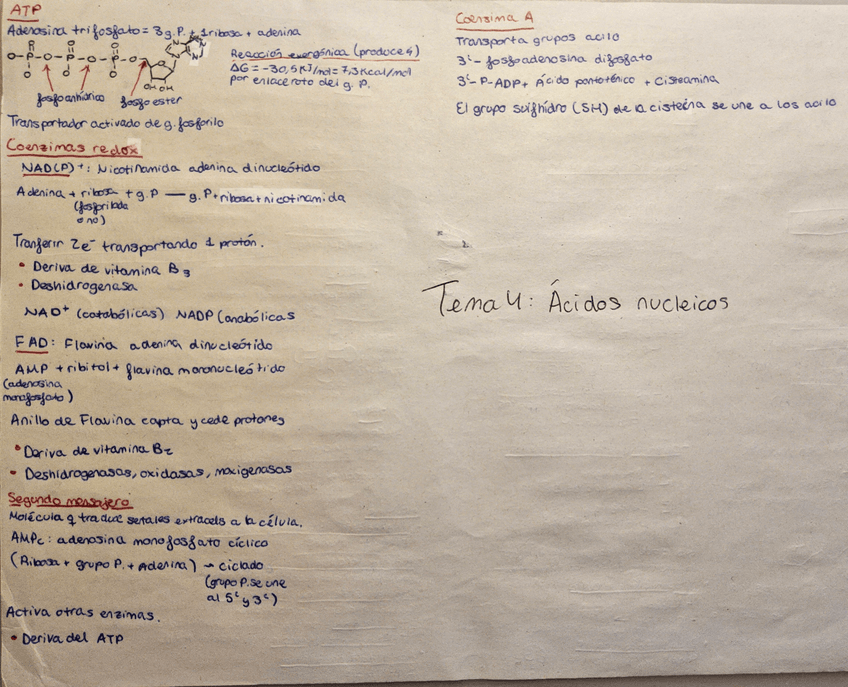 ATP
Adenosina trifosfato = 3 g.P. + 1 ribosa + adenina
fosfoanhídrico fosfoester
Reacción exergónica (produce 4)
ΔG = -30,5 KJ/mol = 7,3 Kcal/mol
por enlace roto del g. P.
Transportador activado de g. fosforilo
Coenzimas redox
NAD(P)+: Nicotinamida adenina dinucleótido
Adenina + ribosa + g.P — g.P + ribosa + nicotinamida
(fosforilada
o no)
Tranferir 2e- transportando 1 protón.
• Deriva de vitamina B3
• Deshidrogenasa
NAD+ (catabólicas) NADP (anabólicas
FAD: Flavina adenina dinucleótido
AMP + ribitol + flavina mononucleótido
(adenosina
monofosfato)
Anillo de Flavina capta y cede protones
• Deriva de vitamina B2
• Deshidrogenasas, oxidasas, moxigenasas
Segundo mensajero
Molécula q traduce señales extracels a la célula.
AMPc: adenosina monofosfato cíclico
(Ribosa + grupo P. + Adenina) → ciclado
(grupo P. se une
al 5' y 3')
Activa otras enzimas.
• Deriva del ATP
Coenzima A
Transporta grupos acilo
3'- fosfoadenosina difosfato
3'-P-ADP + Ácido pantoténico + Cisteamina
El grupo sulfhidro (SH) de la cisteína se une a los acilo
Tema 4: Ácidos nucleicos